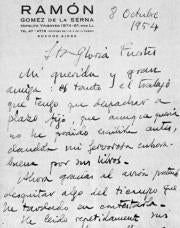 RAMÓN
GOMEZ DE LA SERNA
BUENOS AIRES
8 Octubre
1954
Srta Gloria Fuertes
Mi querida y gran
amiga: es tanto el trabajo
que tengo que despachar a
plazo fijo, que aunque quería
no he podido escribir antes,
dándole mi fervorosa enhora-
buena por sus libros.
Ahora gracias al avión podré
desquitar algo del tiempo que
he tardado en contestarla
He leído repetidamente sus